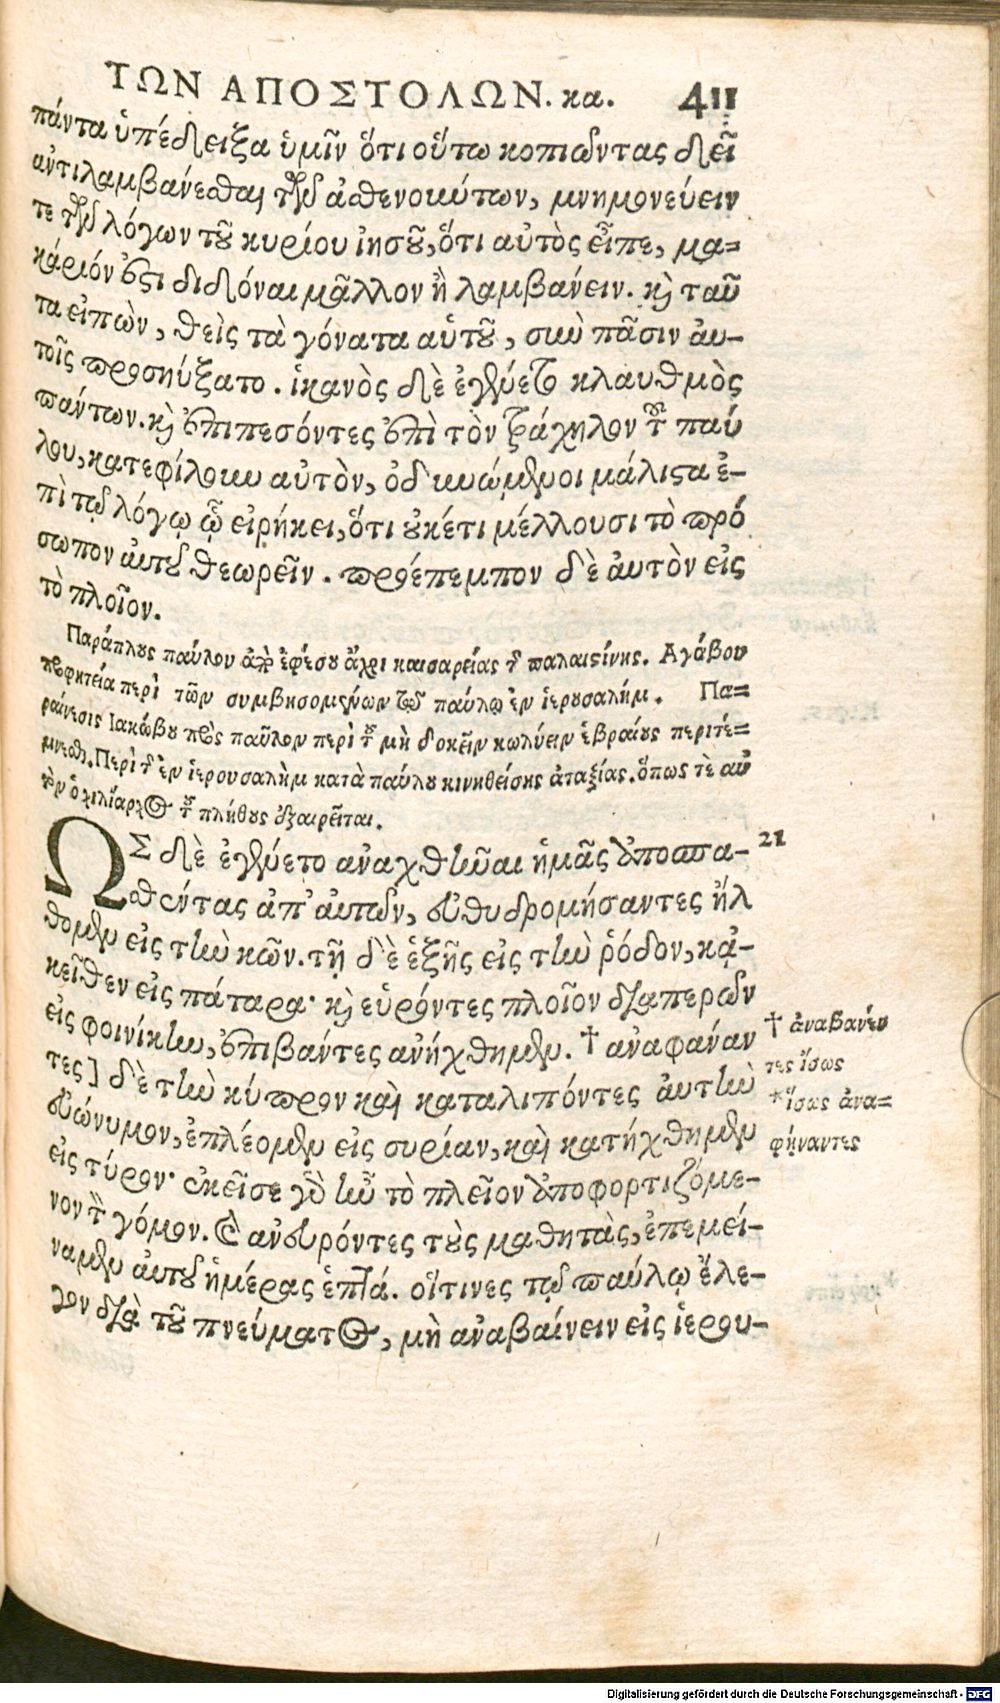 ΤΩΝ ΑΠΟΣΤΟΛΩΝ. κα. 411
πάντα ὑπέδειξα ὑμῖν ὅτι οὕτω κοπιῶντας δεῖ
ἀντιλαμβάνεσθαι τῶν ἀσθενούντων, μνημονεύειν
τε τῶν λόγων τοῦ κυρίου ἰησοῦ, ὅτι αὐτὸς εἶπε, μα=
κάριόν ἐστι διδόναι μᾶλλον ἢ λαμβάνειν. καὶ ταῦ
τα εἰπὼν, θεὶς τὰ γόνατα αὑτοῦ, σὺν πᾶσιν ἀυ-
τοῖς προσηύξατο. ἱκανὸς δὲ ἐγένετο κλαυθμὸς
πάντων. καὶ ἐπιπεσόντες ἐπὶ τὸν τράχηλον τοῦ παύ
λου, κατεφίλουν αὐτὸν, ὀδυνώμενοι μάλιστα ἐ-
πὶ τῷ λόγῳ ᾧ εἰρήκει, ὅτι οὐκέτι μέλλουσι τὸ πρό
σωπον ἀυτοῦ θεωρεῖν. προέπεμπον δὲ ἀυτὸν εἰς
τὸ πλοῖον.
Παράπλους παύλου ἀπὸ ἐφέσου ἄχρι καισαρείας τῆς παλαιστίνης. Αγάβου
προφητεία περὶ τῶν συμβησομένων τῷ παύλῳ ἐν ἱερουσαλήμ. Πα=
ραίνεσις Ιακώβου πρὸς παῦλον περὶ τοῦ μὴ δοκεῖν κωλύειν ἑβραίους περιτέ=
μνεσθαι. Περὶ τῆς ἐν ἱερουσαλὴμ κατὰ παύλου κινηθείσης ἀταξίας. ὅπως τὲ αὐ
τὸν ὁ χιλίαρχος τοῦ πλήθους ἐξαιρεῖται.
ΩΣ δὲ ἐγένετο ἀναχθῆναι ἡμᾶς ἀποσπα- 21
σθέντας ἀπ' ἀυτῶν, εὐθυδρομήσαντες ἤλ
θομεν εἰς τὴν κῶν. τῇ δὲ ἑξῆς εἰς τὴν ῥόδον, κᾀ-
κεῖθεν εἰς πάταρα· καὶ εὑρόντες πλοῖον διαπερῶν
εἰς φοινίκην, ἐπιβάντες ἀνήχθημεν. † ἀναφανάν
τες] δὲ τὴν κύπρον καὶ καταλιπόντες ἀυτὴν
εὐώνυμον, ἐπλέομεν εἰς συρίαν, καὶ κατήχθημεν
εἰς τύρον· ἐκεῖσε γὰρ ἦν τὸ πλεῖον ἀποφορτιζόμε-
νον τὸν γόμον. Καὶ ἀνευρόντες τοὺς μαθητὰς, ἐπεμεί-
ναμεν ἀυτοῦ ἡμέρας ἑπτά. οἵτινες τῷ παύλῳ ἔλε-
γον διὰ τοῦ πνεύματος, μὴ ἀναβαίνειν εἰς ἱερου-
† ἀναβανέν
τες ἴσως
*ἴσως ἀνα=
φήναντες
Digitalisierung gefördert durch die Deutsche Forschungsgemeinschaft - DFG